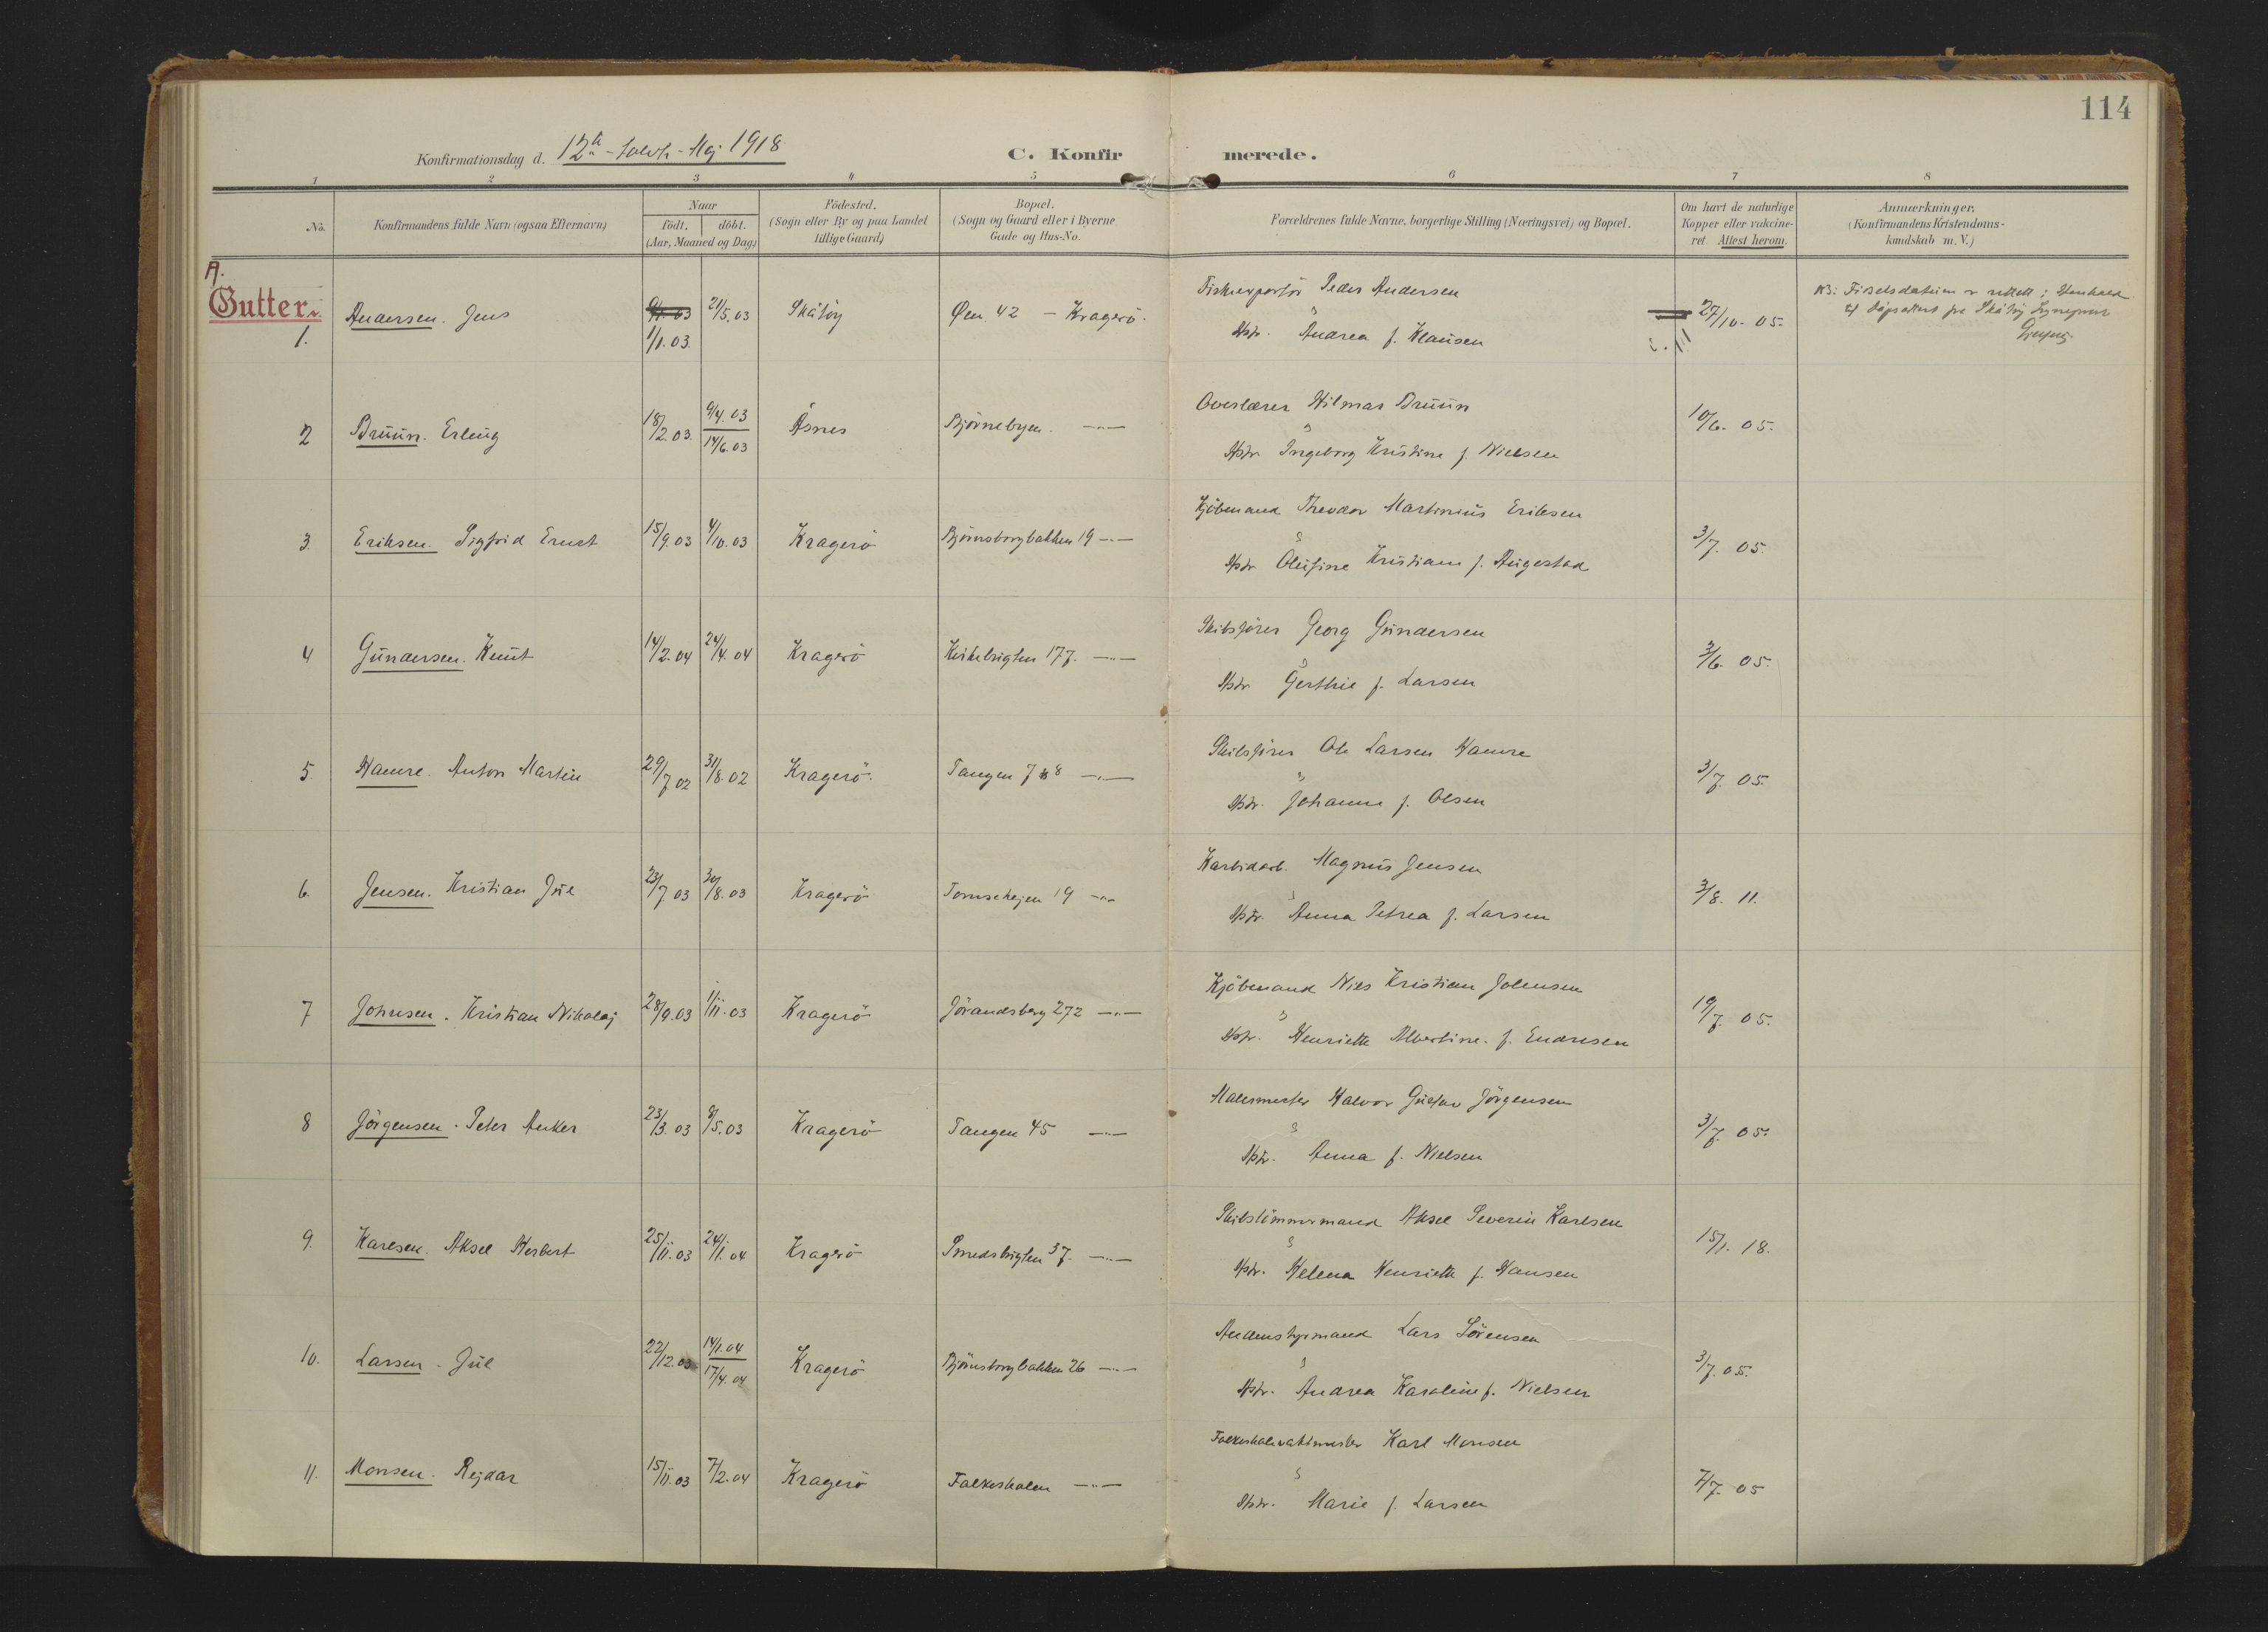 114
Konfirmationsdag d. 12te - tolvte - Maj 1918
C. Konfirmerede.
1 2 3 4 5 6 7 8
No.
Konfirmandens fulde Navn (ogsaa Efternavn)
Naar
födt. döbt.
(Aar, Maaned og Dag)
Födested.
(Sogn eller By og paa Landet
tillige Gaard)
Bopæl.
(Sogn og Gaard eller i Byerne
Gade og Hus-No.
Forældrenes fulde Navne, borgerlige Stilling (Næringsvei) og Bopæl.
Om havt de naturlige
Kopper eller vakcine-
ret Attest herom.
Anmærkninger.
(Konfirmandens Kristendoms-
kundskab m. V.)
A.
Gutter.
1. Andersen. Jens 1/1.03. 21/5.03 Skåtöy Øen 42 - Kragerö. Fiskexportör Peder Andersen
Hstr. Andrea f. Klausen 27/10. 05.
NB: Födselsdatoen er rettet i Henhold
til Dåpsattest fra Skåtöy Sogneprest
2 Bruun. Erling 18/2.03. 9/4.03 14/6.03 Åsnes Bjørnebyen. -"- Overlærer Hilmar Bruun
Hstr. Ingeborg Kristine f. Nielsen 10/6. 05.
3. Eriksen. Sigfrid Ernst 15/9.03 4/10.03 Kragerö Bjørnsborgbakken 19 -"- Kjøbmand Theodor Martinius Eriksen
Hstr. Olufine Kristiane f. Augestad 3/7. 05.
4 Gundersen. Knut 14/2.04 24/4.04 Kragerö Kirkebrigten 177. -"- Skibsfører Georg Gundersen
Hstr. Gerthie f. Larsen 3/6. 05.
5. Hamre. Anton Martin 29/7 02 31/8.02 Kragerö. Tangen 78 -"- Skibsfører Ole Larsen Hamre
Hstr. Johanne f. Olsen 3/7. 05.
6. Jensen. Kristian Jul 23/7 03 30/8.03 Kragerö 19 -"- Karbidarb. Magnus Jensen
Hstr. Anna Petrea f. Larsen 3/8. 11.
7 Johnsen. Kristian Nikolaj 28/9.03 1/11.03 Kragerö Jörandsberg 272 -"- Kjöbmand Nils Kristian Johnsen
Hstr. Henriette Albertine. f. Endresen 19/7. 05.
8 Jörgensen. Peter Anker 23/3.03 8/5.03 Kragerö Tangen 45 -"- Malermester Halvor Gustav Jörgensen
Hstr. Anna f. Nielsen 3/7. 05.
9. Karlsen. Aksel Herbert 25/11.03 24/1.04 Kragerö Smedsbrigten 37. -"- Skibstömmermand Aksel Severin Karlsen
Hstr. Helena Henriette f. Hansen 15/1. 18.
10. Larsen - Jul 22/12.03 14/1.04 17/4.04 Kragerö Bjørnsborgbakken 26 -"- Andenstyrmand Lars Sörensen
Hstr. Andrea Karoline f. Nielsen 3/7. 05.
11. Monsen. Rejdar 15/11.03 7/2.04 Kragerö Folkeskolen -"- Folkeskolevaktmester Karl Monsen
Hstr. Marie f. Larsen 7/7. 05